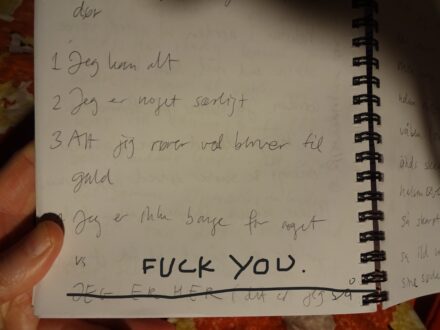 dør
1 Jeg kan alt
2 Jeg er noget særligt
3 Alt jeg rører ved bliver til
guld
4 Jeg er ikke bange for noget
FUCK YOU.
JEG ER HER i det er jeg så